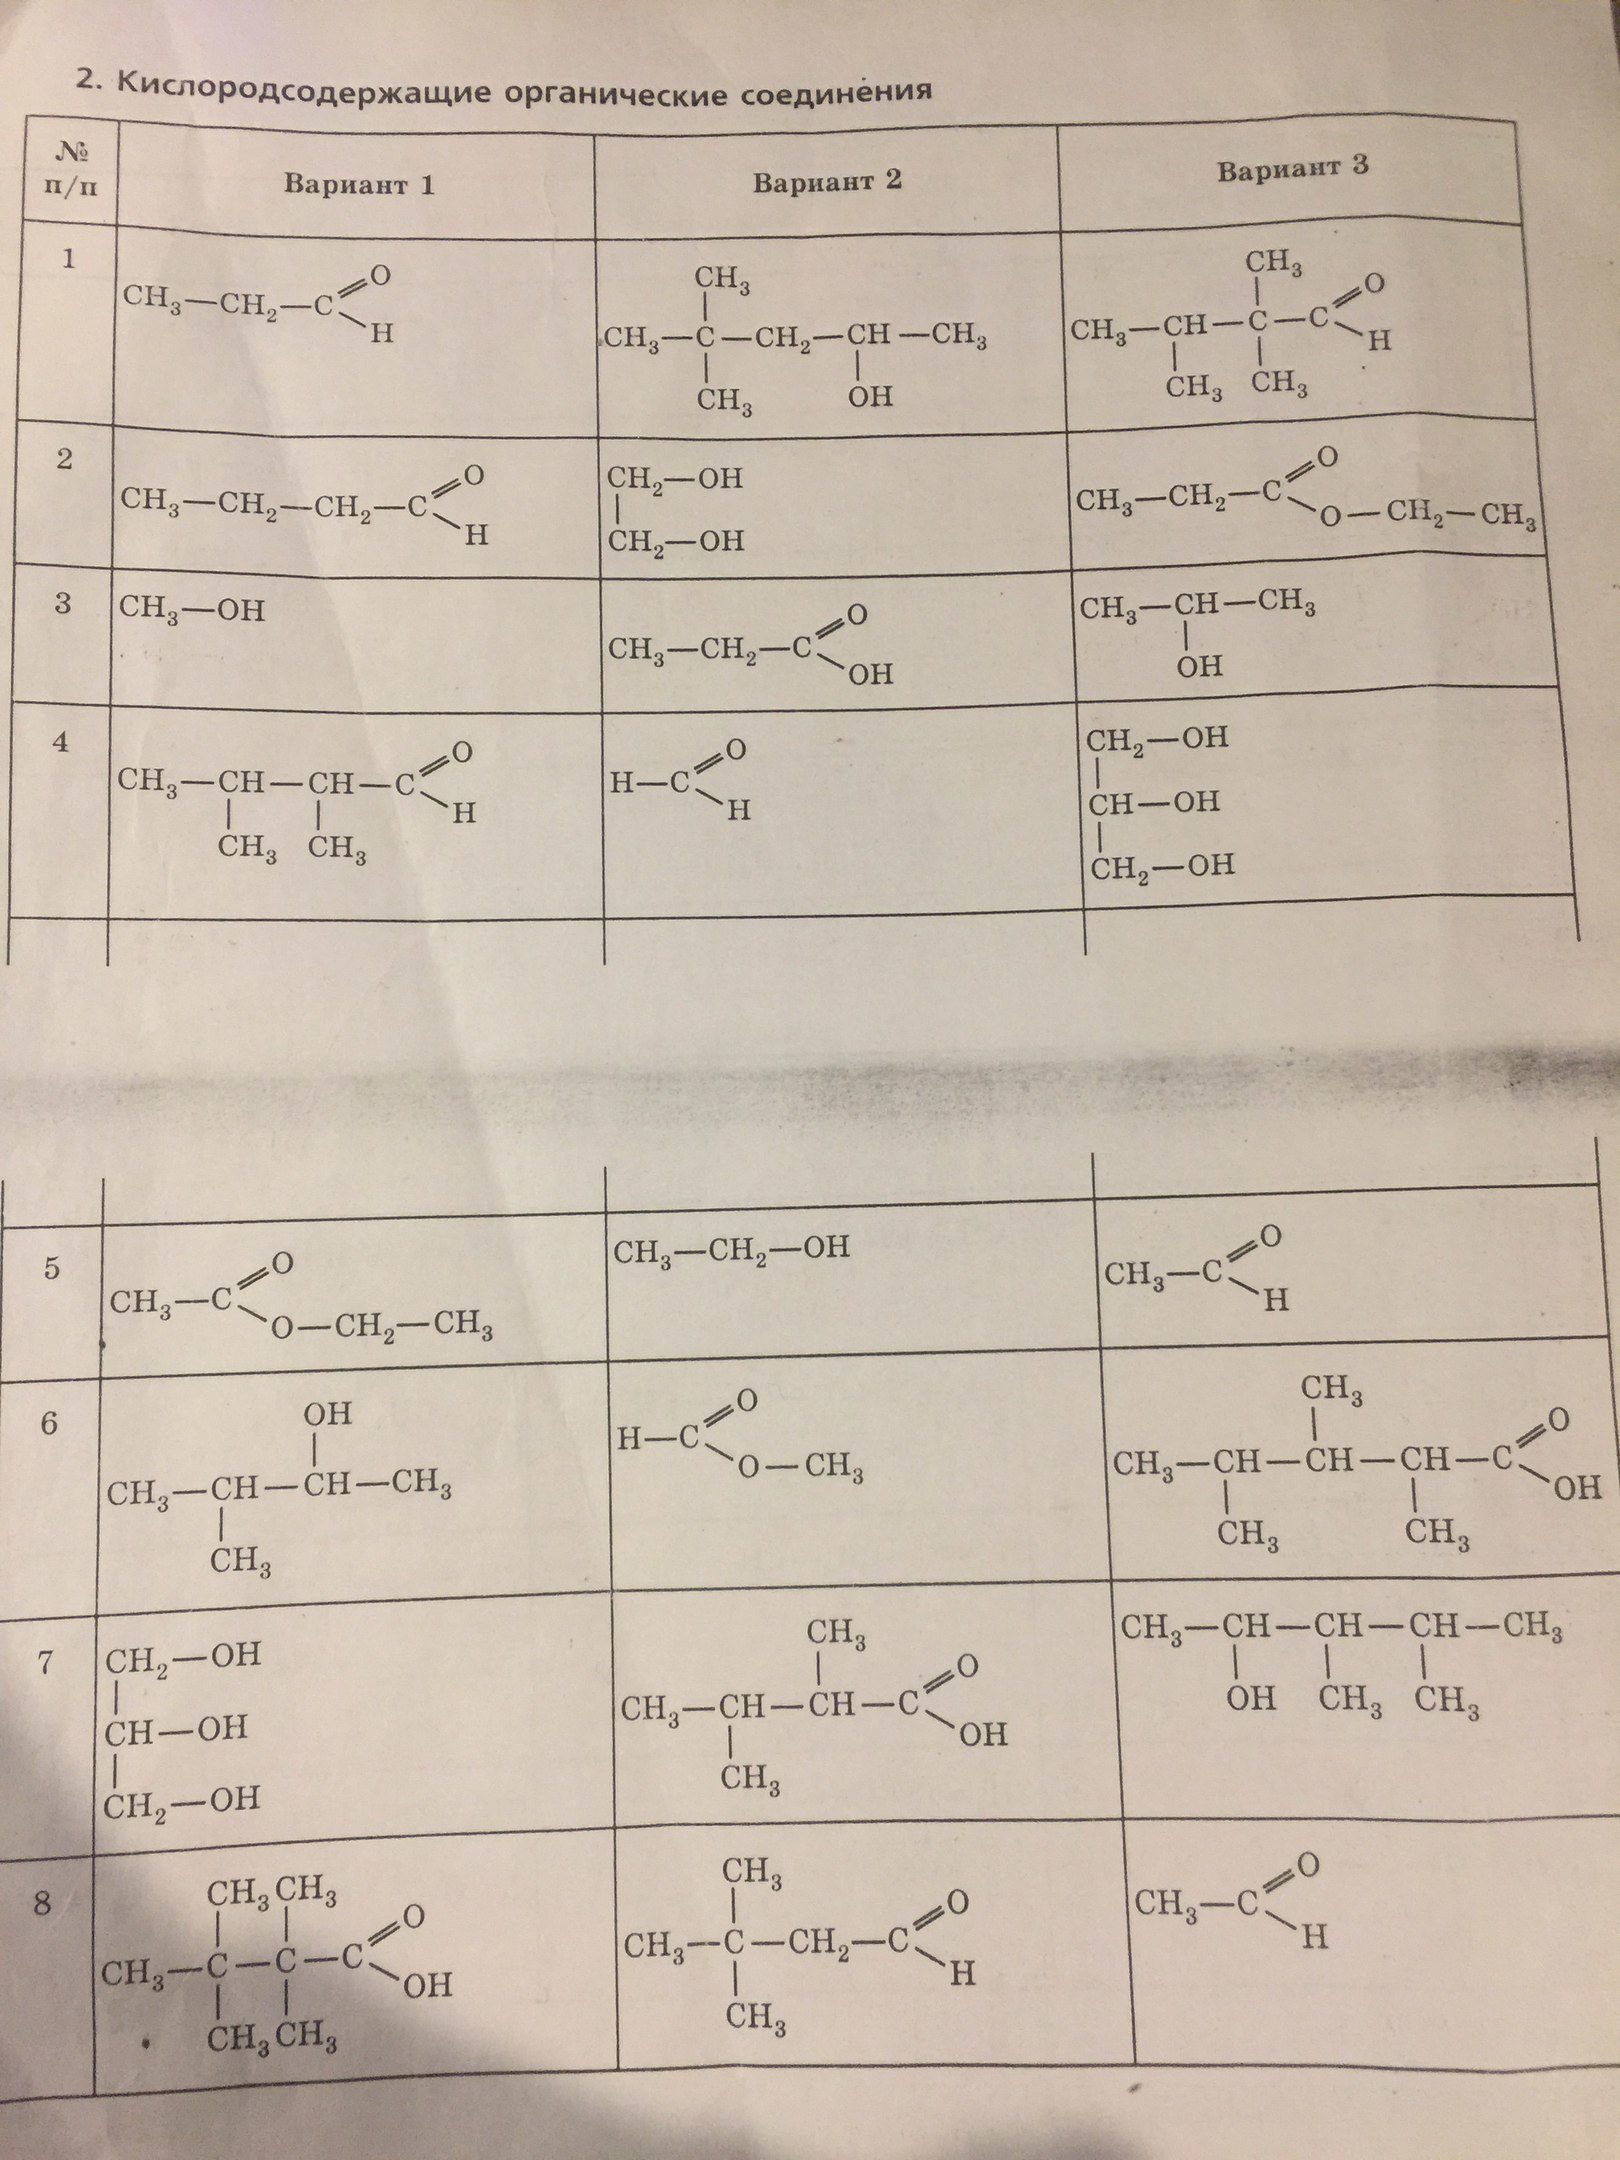 2. Кислородсодержащие органические соединения
№ п/п
Вариант 1
Вариант 2
Вариант 3
1
CH₃—CH₂—C
O
H
CH₃
CH₃—C—CH₂—CH—CH₃
CH₃ OH
CH₃
CH₃—CH—C—C
O
H
CH₃ CH₃
2
CH₃—CH₂—CH₂—C
O
H
CH₂—OH
CH₂—OH
CH₃—CH₂—C
O
O—CH₂—CH₃
3
CH₃—OH
CH₃—CH₂—C
O
OH
CH₃—CH—CH₃
OH
4
CH₃—CH—CH—C
O
H
CH₃ CH₃
H—C
O
H
CH₂—OH
CH—OH
CH₂—OH
5
CH₃—C
O
O—CH₂—CH₃
CH₃—CH₂—OH
CH₃—C
O
H
6
OH
CH₃—CH—CH—CH₃
CH₃
H—C
O
O—CH₃
CH₃
CH₃—CH—CH—CH—C
O
OH
CH₃ CH₃
7
CH₂—OH
CH—OH
CH₂—OH
CH₃
CH₃—CH—CH—C
O
OH
CH₃
CH₃—CH—CH—CH—CH₃
OH CH₃ CH₃
8
CH₃ CH₃
CH₃—C—C—C
O
OH
CH₃ CH₃
CH₃
CH₃—C—CH₂—C
O
H
CH₃
CH₃—C
O
H